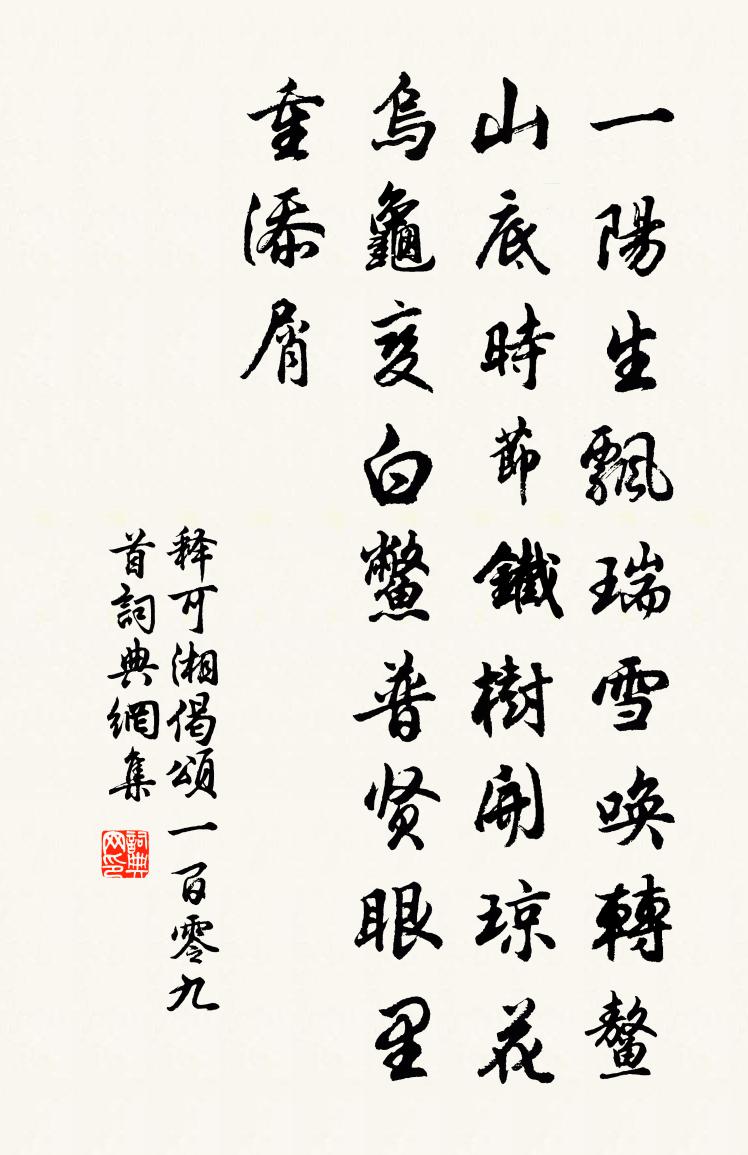 一陽生飄瑞雪喚轉鰲
山底時節鐵樹開琼花
烏龜变白鱉普贤眼里
重添屑
释可湘偈頌一百零九
首詞典網集
詞典網印